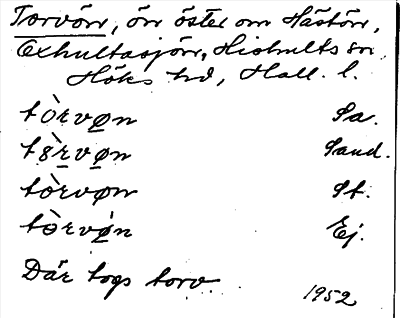 Torvörr, örr öster om Hästörr,
Exhultasjön, Hishults sn
Höks hd, Hall. l.
tòrvøn Sa.
t8̀rvøn Sand.
tòrvøn St.
tòrvøn Ej.
Där togs torv.
1952